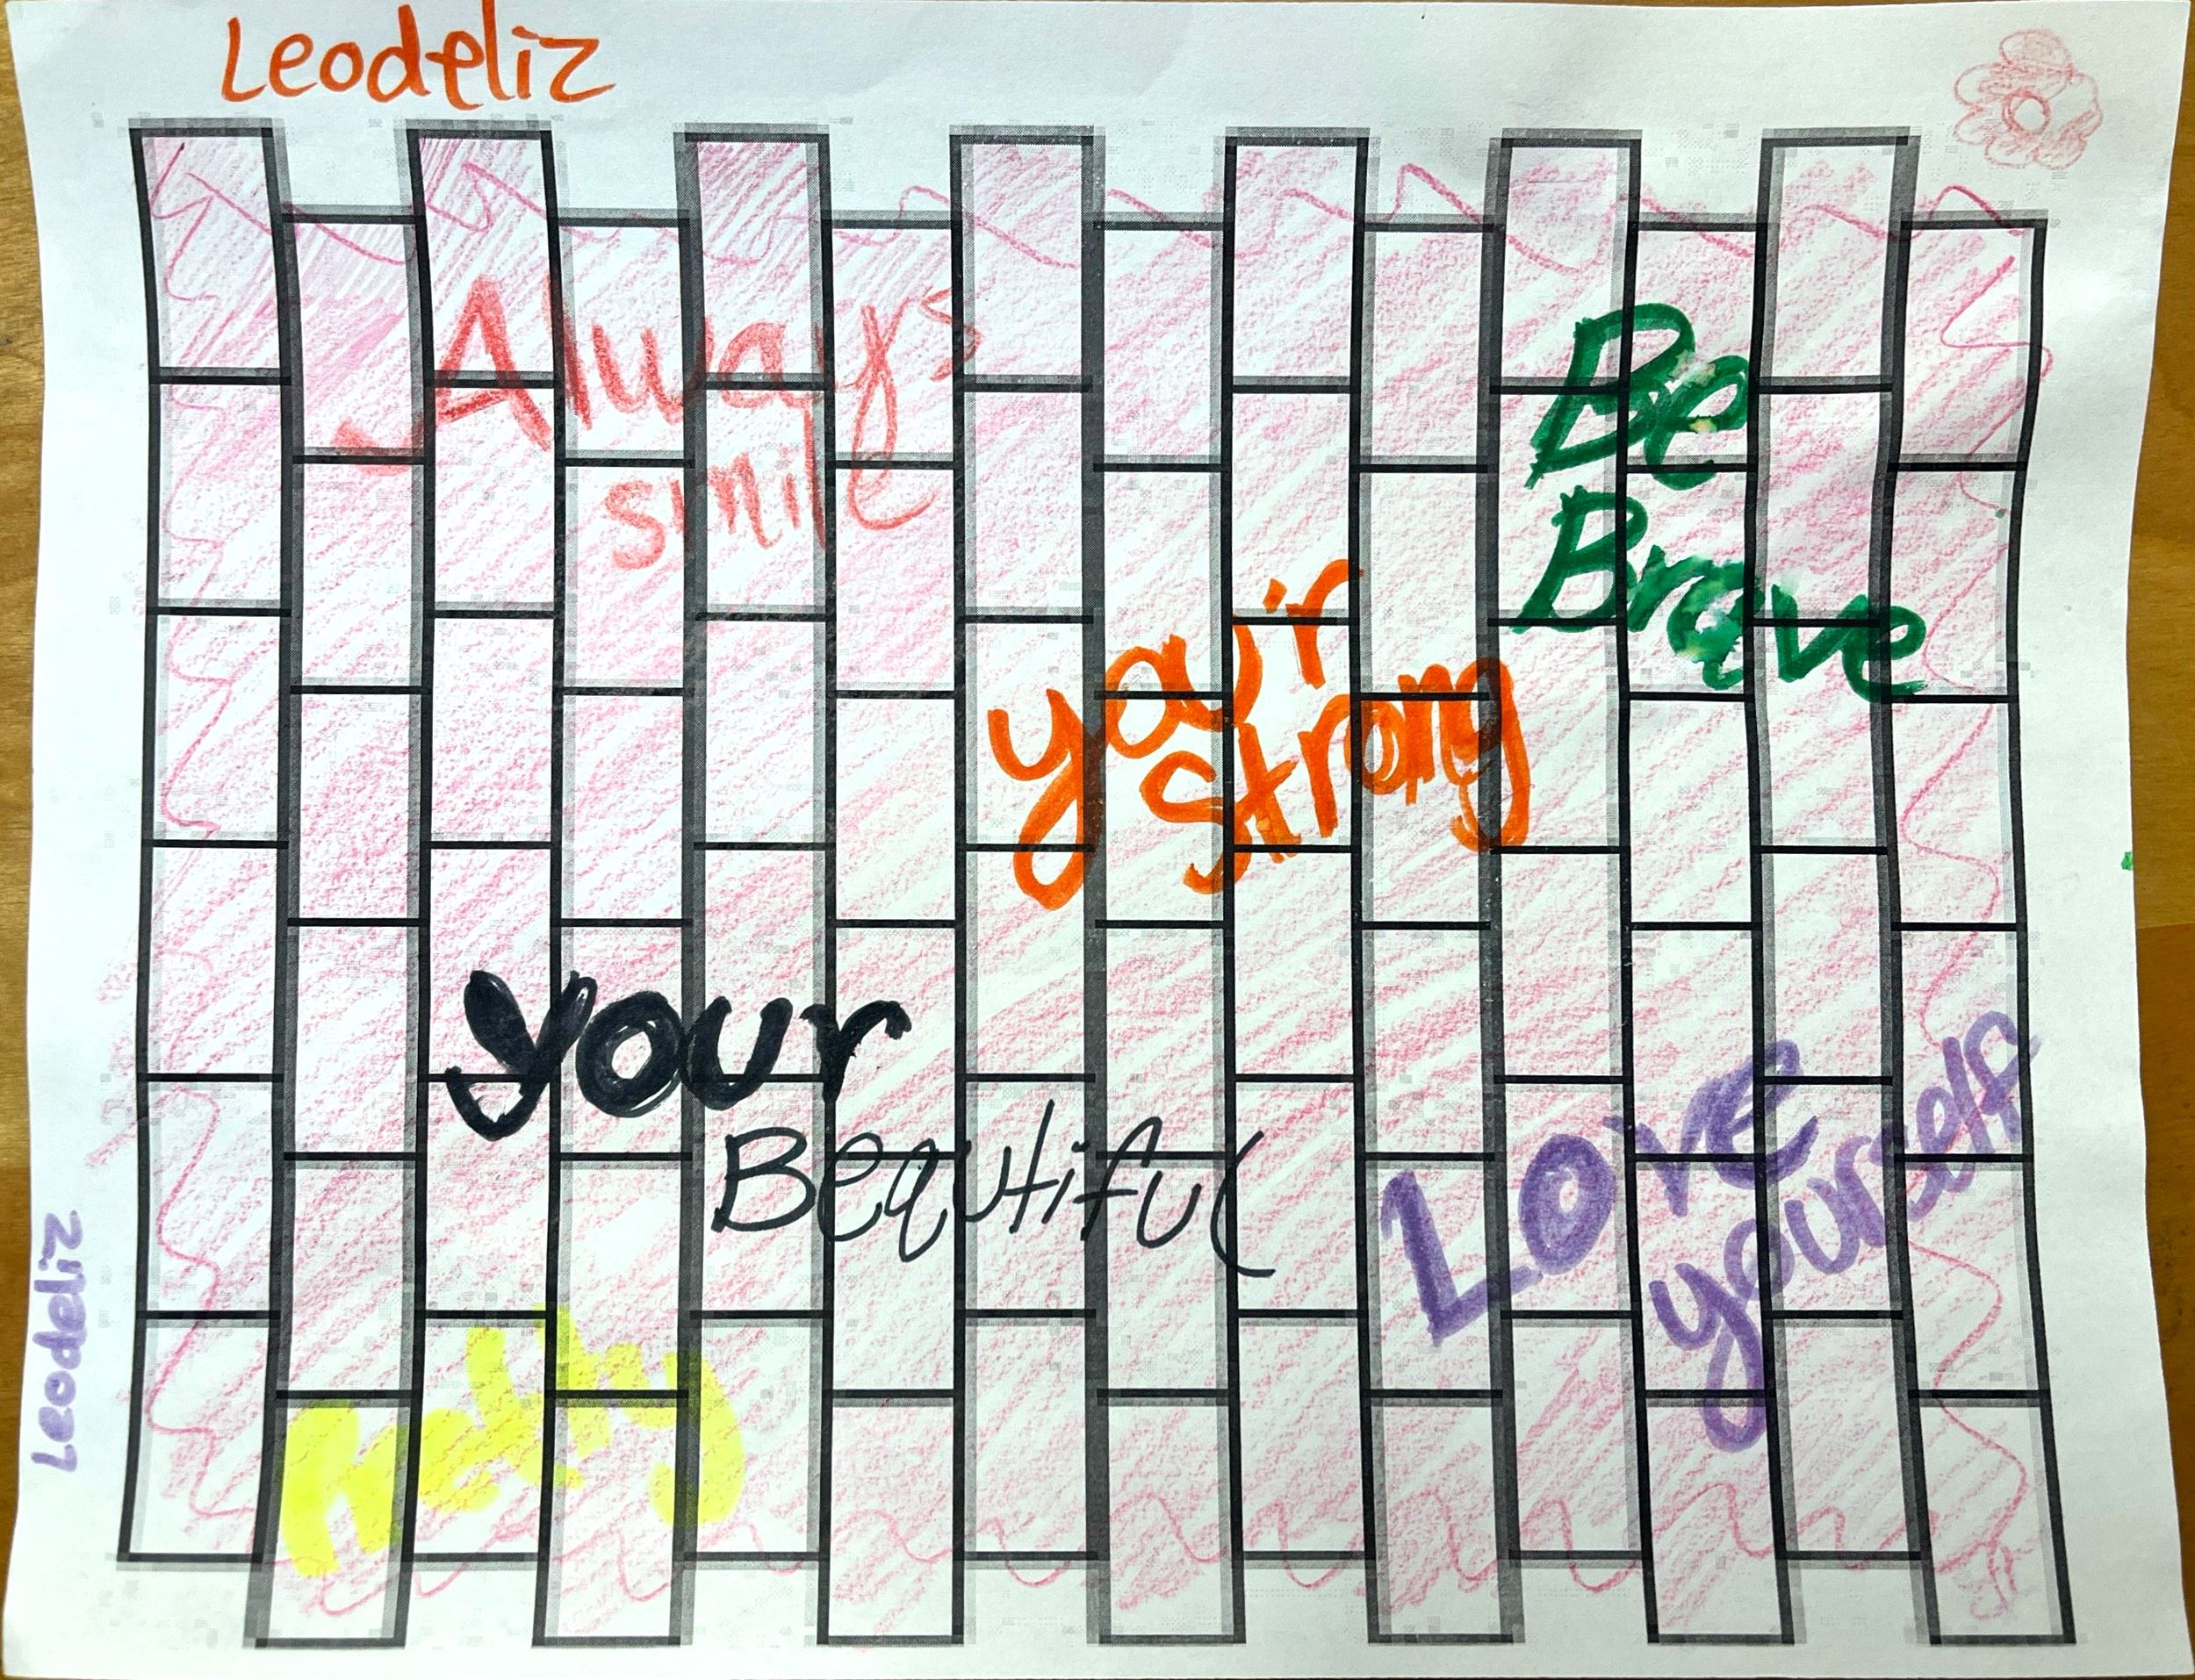 Leodeliz
Always
smile
Be
Brave
your
strong
your
Beautiful
Love
yourself
Leodeliz